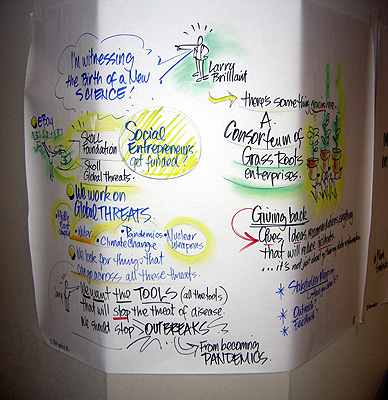 I'm witnessing
the Birth of a New
SCIENCE!
Larry
Brilliant
there's something growing here...
eBay
Skoll
Foundation
Skoll
Global threats.
Social
Entrepreneurs
get funded!
A
Consorteum of
Grass Roots
enterprises.
We work on
Global THREATS.
Middle
East
Water
Pandemics
Climate Change
Nuclear
Weapons
We look for things that
can go across all these threats.
Giving back
Gives Ideas, recommendations, anything
that will
...it's not just about
We want the TOOLS (all the tools)
that will stop the threat of disease.
We should stop OUTBREAKS
From becoming
PANDEMICS.
* Stakeholder
* Outreach?
* Feedback?